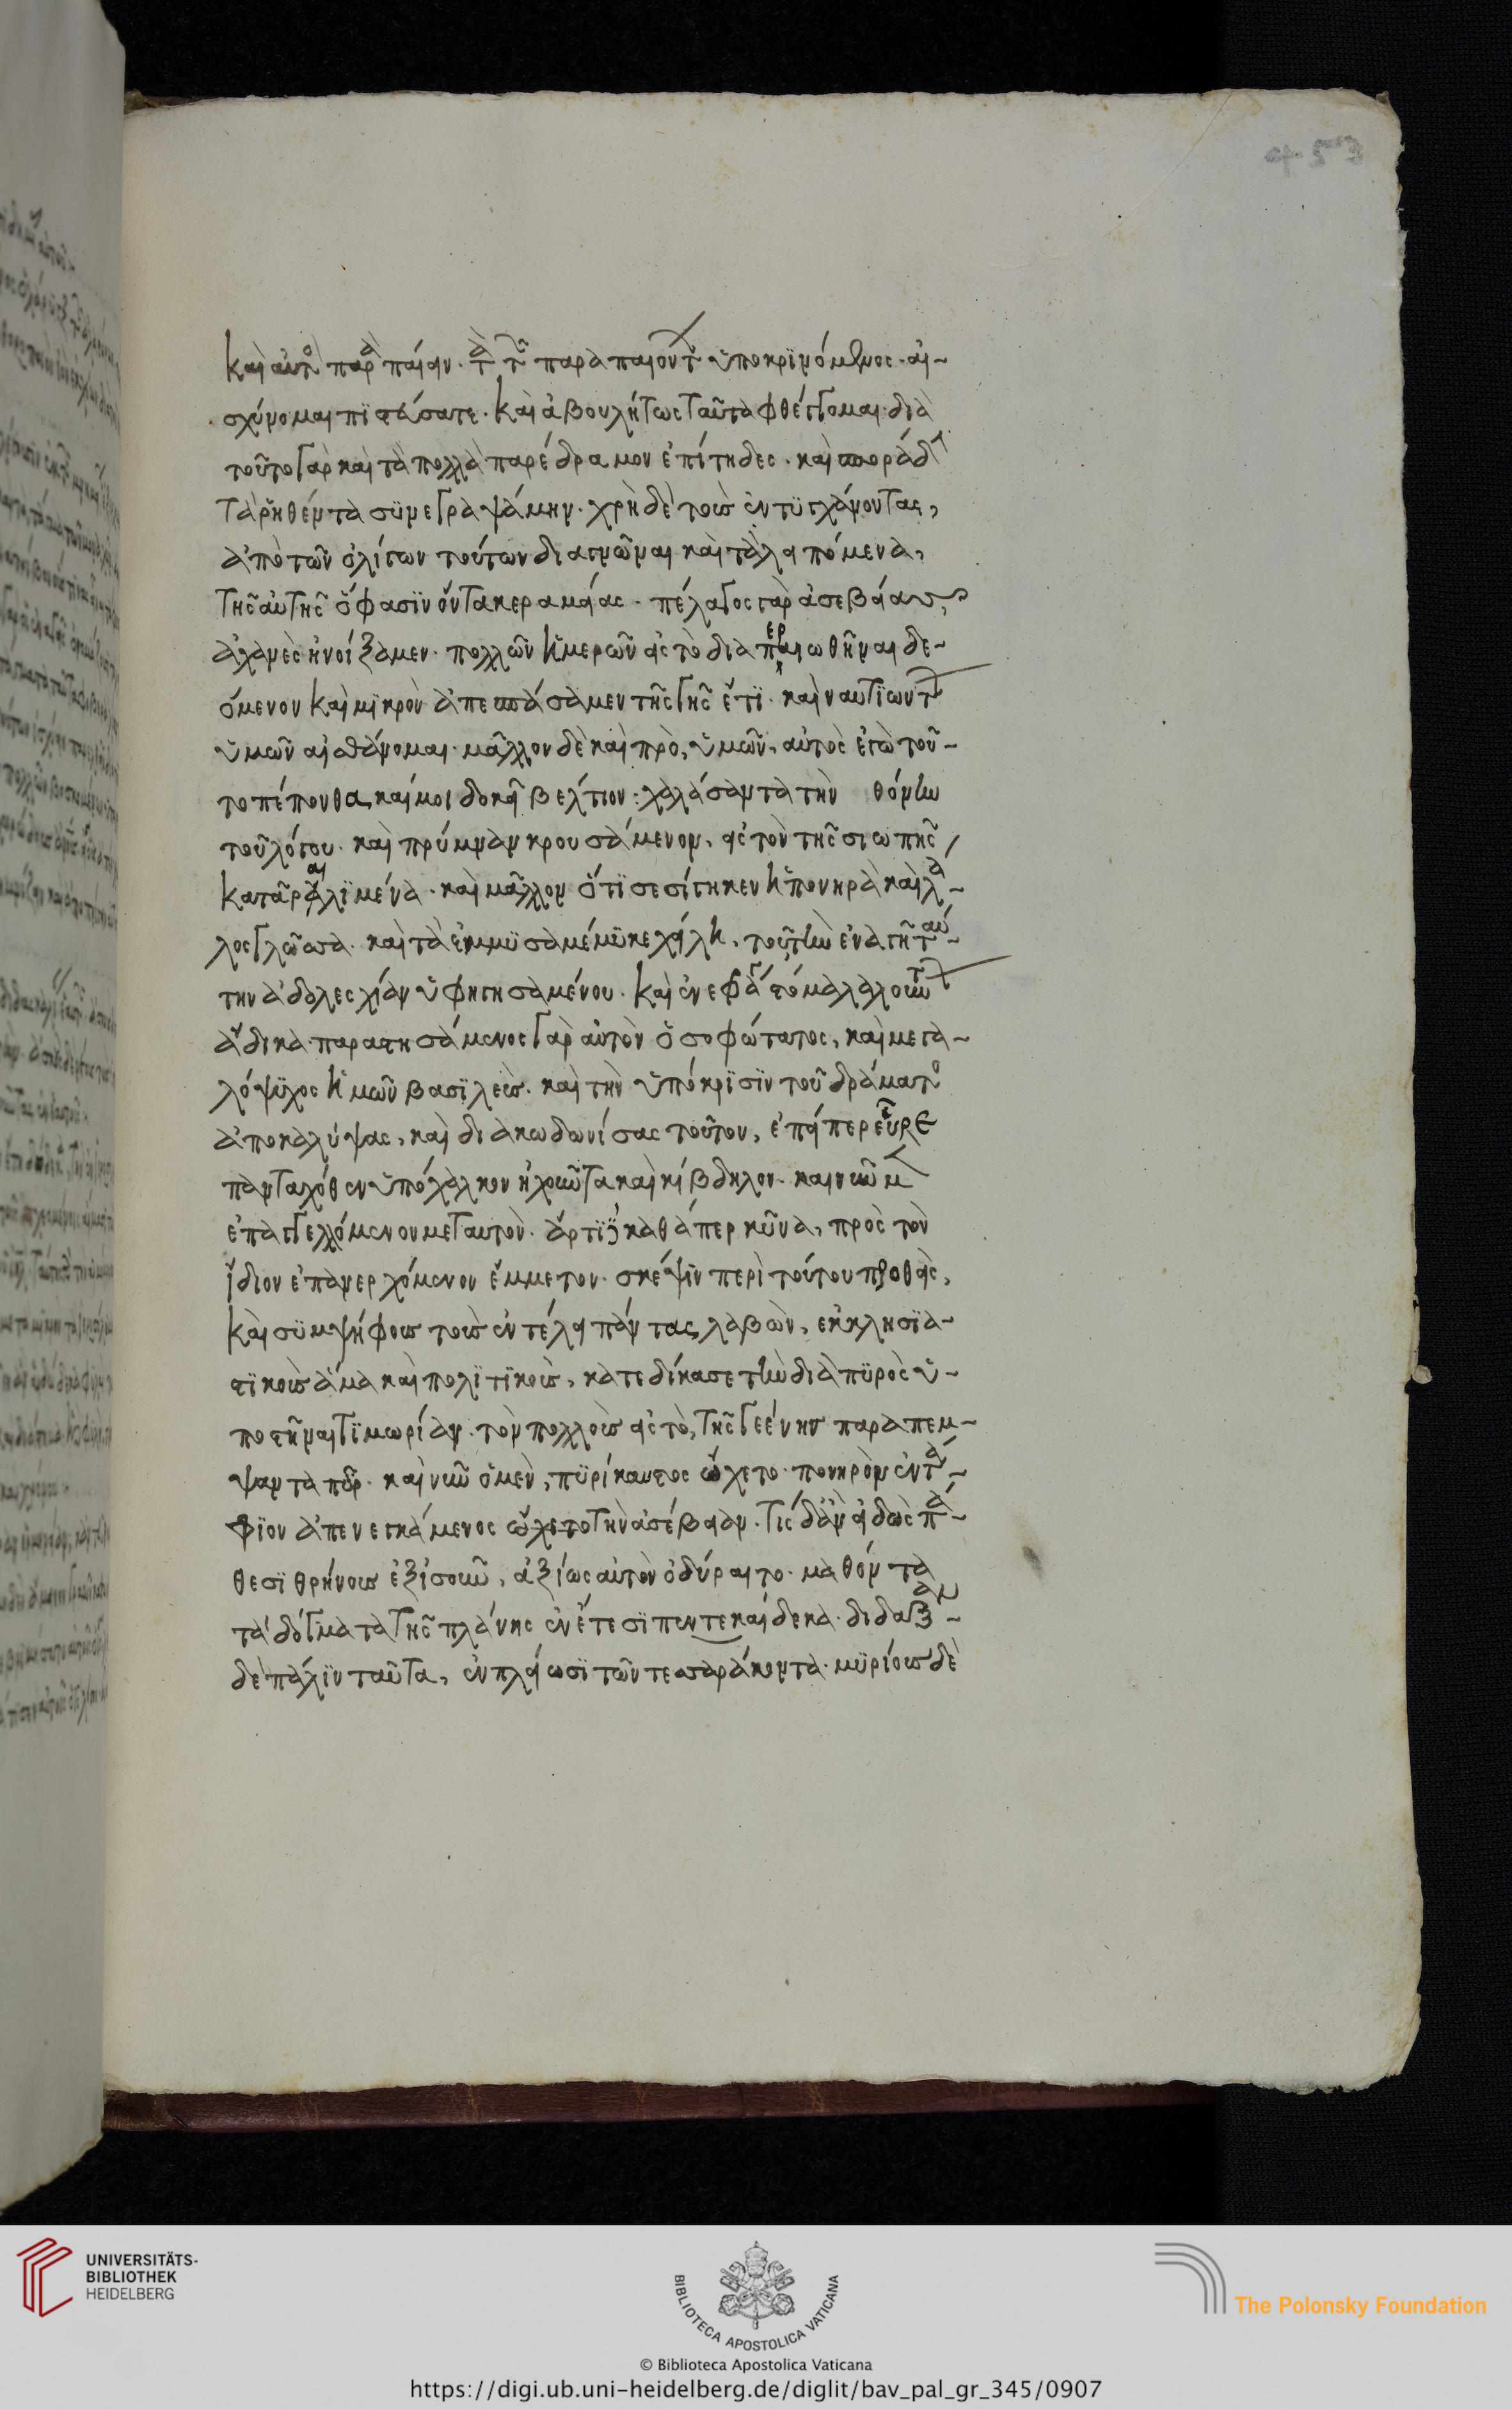 453
καὶ αὐτὸ παραπαίειν. τὰ τῶν παραπαιόντων ὑποκρινόμενος. αἰ-
σχύνομαι πιστεύσατε. καὶ ἀβουλήτως ταῦτα φθέγγομαι. διὰ
τοῦτο γὰρ καὶ τὰ πολλὰ παρέδραμον ἐπίτηδες. καὶ σποράδην
τὰ ῥηθέντα συνεγραψάμην. χρὴ δὲ τοὺς ἐντυγχάνοντας,
ἀπὸ τῶν ὀλίγων τούτων διαγνῶναι καὶ τὰ λειπόμενα,
τῆς αὐτῆς ὅ φασιν ὄντα κεραμείας. πέλαγος γὰρ ἀσεβείας,
ἀχανὲς ἠνοίξαμεν. πολλῶν ἡμερῶν εἰς τὸ διαπεραιωθῆναι δε-
όμενον καὶ μικρὸν ἀπεσπάσαμεν τῆς γῆς ἔτι. καὶ ναυτιώντων
ὑμῶν αἰσθάνομαι. μᾶλλον δὲ καὶ πρὸ, ὑμῶν, αὐτὸς ἐγὼ τοῦ-
το πέπονθα, καί μοι δοκεῖ βέλτιον: χαλάσαντα τὴν θόνην
τοῦ λόγου. καὶ πρύμναν κρουσάμενον, εἰς τὸν τῆς σιωπῆς
καταῖραι λιμένα. καὶ μᾶλλον ὅτι σεσίγηκεν ἡ πονηρὰ καὶ λά-
λος γλῶσσα. καὶ τὰ ἐμμυσαμέμυκε χείλη. τοῦ τὴν ἐναγῆ ταύ-
την ἀδολεσχίαν ὑφηγησαμένου. καὶ ἐνεφράγη στόμα λαλούντων
ἄδικα. παραστησάμενος γὰρ αὐτὸν ὁ σοφώτατος, καὶ μεγα-
λόψυχος ἡμῶν βασιλεύς. καὶ τὴν ὑπόκρισιν τοῦ δράματος
ἀποκαλύψας, καὶ διακωδωνίσας τοῦτον, ἐπείπερ εὗρε
πανταχόθεν ὑπόχαλκον ἠχοῦντα καὶ κίβδηλον. καὶ νῦν μὲν
ἐπαγγελλόμενον μεταυτὸν. ἄρτι δὲ καθάπερ κύνα, πρὸς τὸν
ἴδιον ἐπανερχόμενον ἔμμετον. σκέψιν περὶ τούτου προθεὶς,
καὶ συμψήφους τοὺς ἐν τέλει πάντας λαβὼν, ἐκκλησια-
στικοὺς ἅμα καὶ πολιτικοὺς, κατεδίκασε τὴν διὰ πυρὸς ὑ-
ποστῆναι τιμωρίαν. τὸν πολλοὺς εἰς τὸ, τῆς γεέννης παραπέμ-
ψαντα πῦρ. καὶ νῦν ὁ μὲν, πυρίκαυστος ᾤχετο. πονηρὸν ἐντά-
φιον ἀπενεγκάμενος ᾤχετο τὴν ἀσέβειαν. τίς δἂν εἰδὼς πά-
θεσι θρήνους ἐξισοῦν, ἀξίως αὐτὸν ὀδύραιτο. μαθόντα
τὰ δόγματα τῆς πλάνης ἐν ἔτεσι πεντεκαίδεκα. διδάξαν-
δὲ πάλιν ταῦτα, ἐν πλείωσι τῶν τεσσαράκοντα. μυρίους δὲ
UNIVERSITÄTS-
BIBLIOTHEK
HEIDELBERG
BIBLIOTECA APOSTOLICA VATICANA
The Polonsky Foundation
© Biblioteca Apostolica Vaticana
https://digi.ub.uni-heidelberg.de/diglit/bav_pal_gr_345/0907